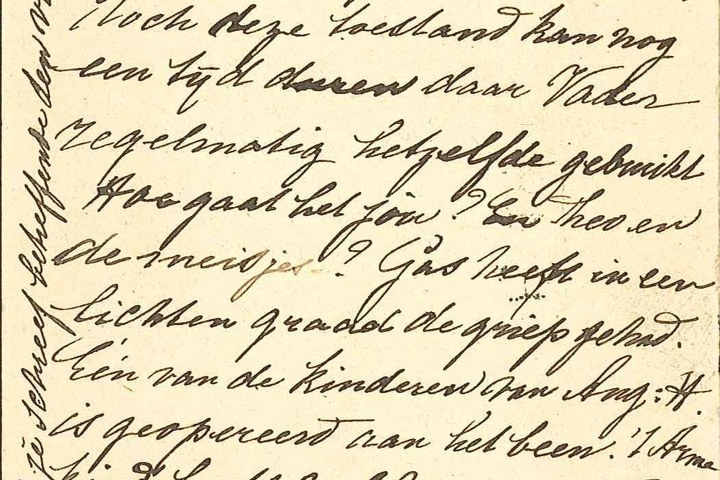 Noch deze toestand kan nog
een tijd duren daar Vader
regelmatig hetzelfde gebruikt
Hoe gaat het jou? En Theo en
de meisjes? Gas heeft in een
lichten graad de griep gehad.
Eén van de kinderen van Aug: H.
is geopereerd aan het been. 't Arme
je schreef betreffende den